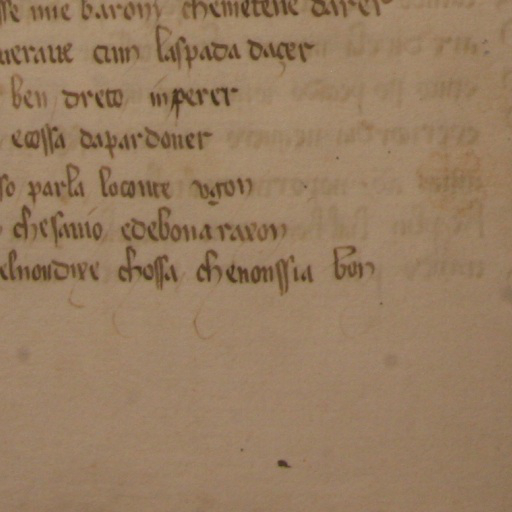 sse mie baronj chemetene darer
ueraue cum laspada daçer
ben dreto inperer
e cossa dapardoner
so parla loconte ugon
chesauio edebona raxon
elnondire chossa chenonssia bon